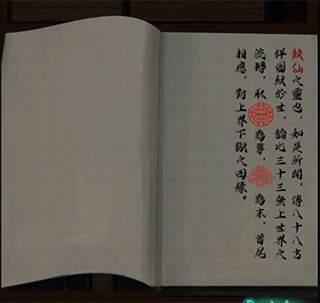 紋仙之靈也，如是所聞，傳八十八古
祥圖紋於世，論比三十三無上世界之
流轉，取 為尊， 為本，首尾
相應，對上界下獄之因緣。